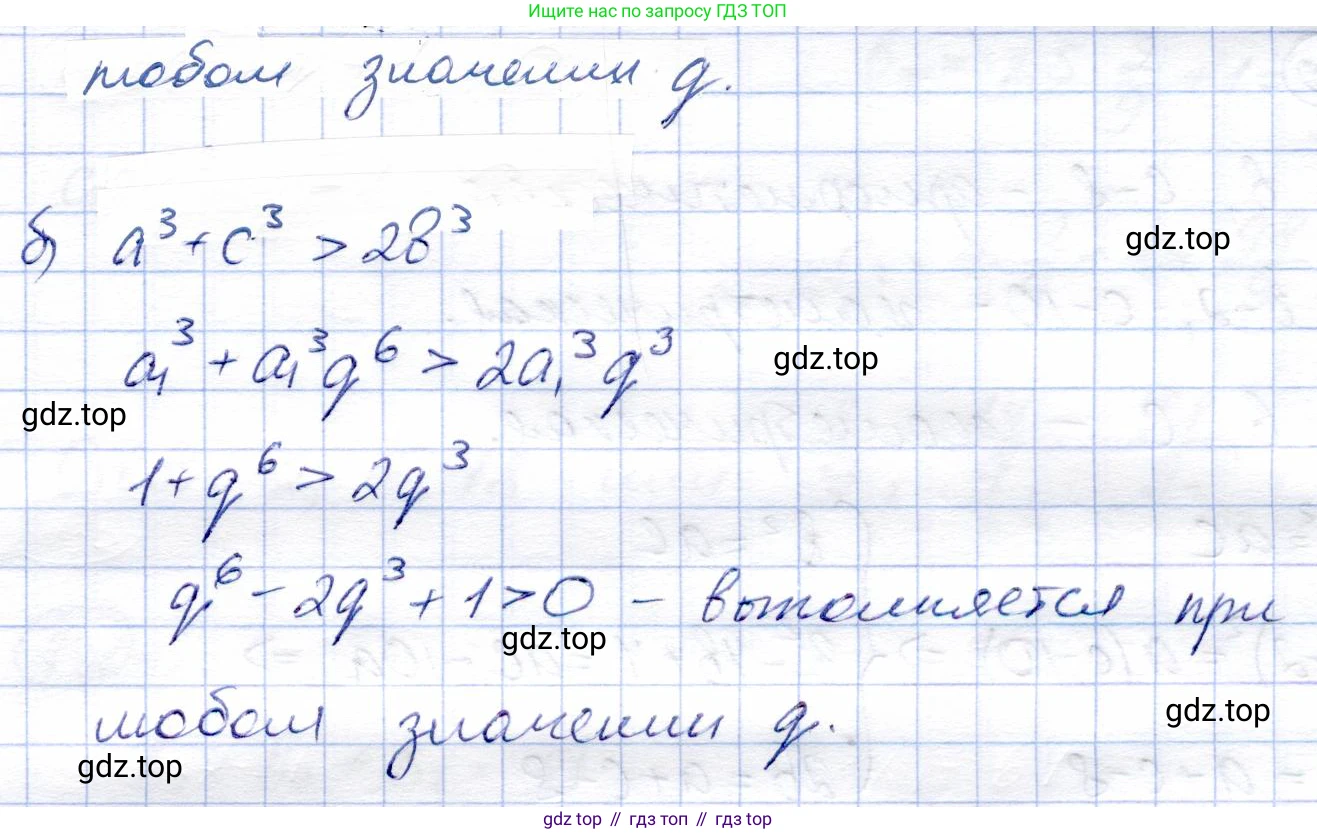 Ищите нас по запросу ГДЗ ТОП
любом значении q.
б) a³ + c³ > 2в³
gdz.top
a₁³ + a₁³q⁶ > 2a₁³q³
gdz.top
gdz.top
1 + q⁶ > 2q³
q⁶ - 2q³ + 1 > 0 - выполняется при
gdz.top
любом значении q.
gdz.top
gdz.top
gdz top // гдз топ // гдз top